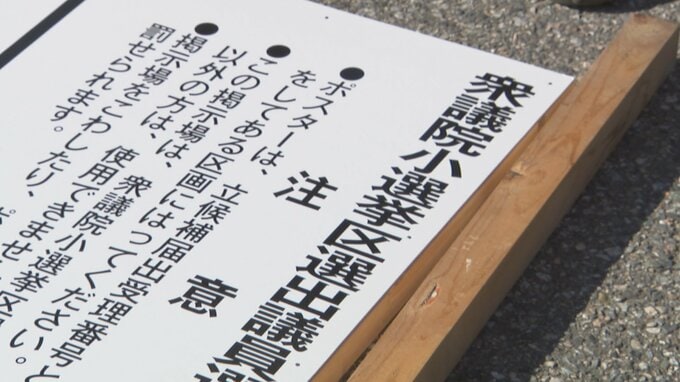 衆議院小選挙区選出議員選
注意
●ポスターは、立候補届出受理番号と
をしてある区画にはってください。
●この掲示場は、衆議院小選挙区
以外の方は、使用できませ
●掲示場をこわしたり、ポ
罰せられます。